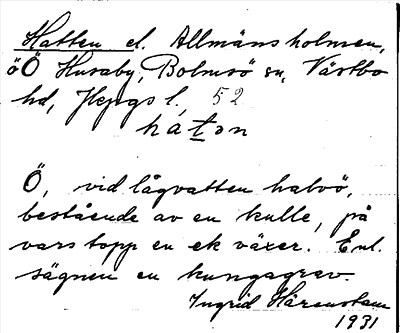 Hatten el. Allmänsholmen,
ö Ö Husaby, Bolmsö sn, Västbo
hd, Jkpgs l, 52
hátən
Ö, vid lågvatten halvö,
bestående av en kulle, på
vars topp en ek växer. Enl.
sägnen en kungagrav.
Ingrid Hårenstam
1931